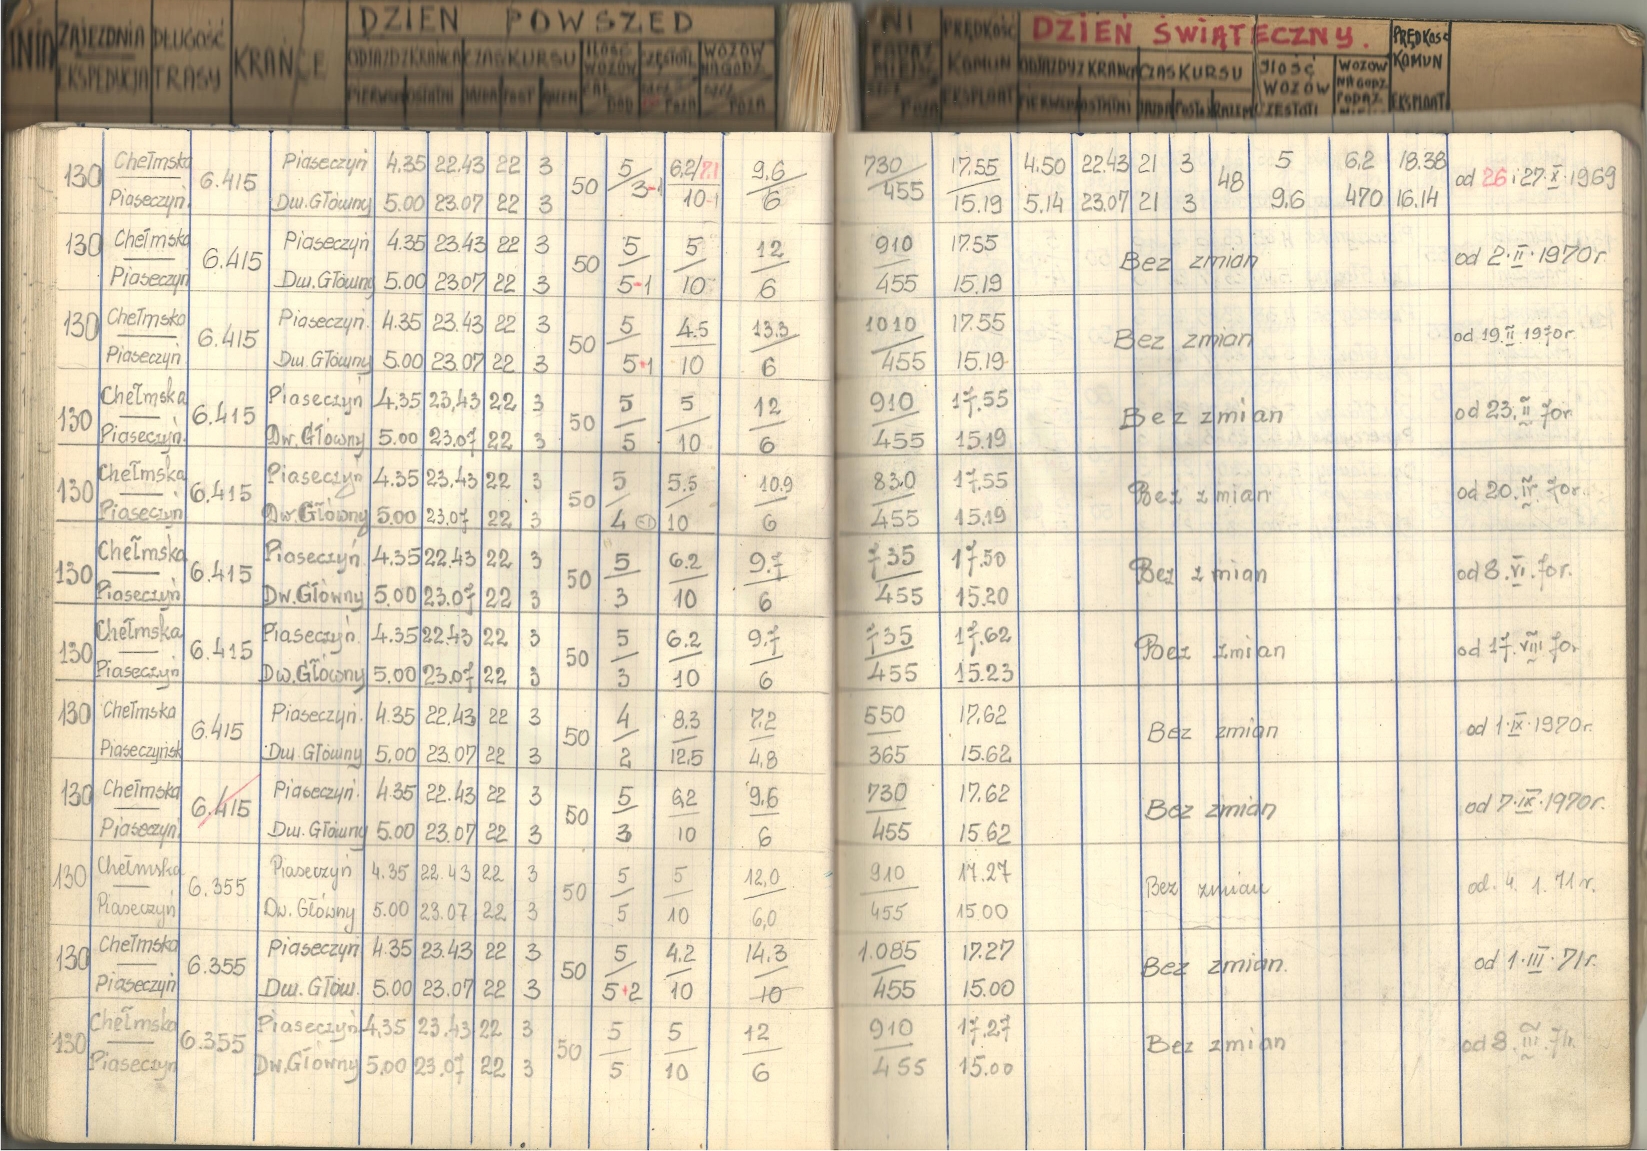 DZIEŃ POWSZED
NI PRĘDKOŚĆ DZIEŃ ŚWIĄTECZNY. PRĘDKOŚĆ
ZAJEZDNIA DŁUGOŚĆ KRAŃCE ODJAZDY Z KRAŃCA CZAS KURSU ILOŚĆ WOZÓW WOZÓW NA GODZ
EKSPEDYCJA TRASY PIERWSZ OSTATNI POST RAZEM POZA
KOMUN ODJAZDY Z KRAŃCA CZAS KURSU ILOŚĆ WOZÓW WOZÓW NA GODZ KOMUN
EKSPLOAT PIERWSZ OSTATNI JAZDA POST RAZEM CZĘSTOTL EKSPLOAT
130 Chełmska 6.415 Piaseczyń 4.35 22.43 22 3 50 5 6,2/7.1 9,6 730 17.55 4.50 22.43 21 3 48 5 6,2 18.38 od 26 i 27.X.1969
Piaseczyń. Dw. Główny 5.00 23.07 22 3 3-1 10-1 6 455 15.19 5.14 23.07 21 3 9,6 470 16.14
130 Chełmska 6.415 Piaseczyń 4.35 23.43 22 3 50 5 5 12 910 17.55 Bez zmian od 2.II.1970r
Piaseczyń Dw. Główny 5.00 23.07 22 3 5-1 10 6 455 15.19
130 Chełmska 6.415 Piaseczyń. 4.35 23.43 22 3 50 5 4.5 13.3 1010 17.55 Bez zmian od 19 II 1970r.
Piaseczyń. Dw. Główny 5.00 23.07 22 3 5+1 10 6 455 15.19
130 Chełmska 6.415 Piaseczyń 4,35 23,43 22 3 50 5 5 12 910 17.55 Bez zmian od 23.II 70r.
Piaseczyń. Dw. Główny 5.00 23.07 22 3 5 10 6 455 15.19
130 Chełmska 6.415 Piaseczyń 4.35 23.43 22 3 50 5 5.5 10.9 830 17.55 Bez zmian od 20.IV.70r.
Piaseczyń Dw. Główny 5.00 23.07 22 3 4 10 6 455 15.19
130 Chełmska 6.415 Piaseczyń 4.35 22.43 22 3 50 5 6.2 9.7 735 17.50 Bez zmian od 8.VI.70r.
Piaseczyń Dw. Główny 5.00 23.07 22 3 3 10 6 455 15.20
130 Chełmska 6.415 Piaseczyń. 4.35 22.43 22 3 50 5 6.2 9.7 735 17.62 Bez zmian od 17.VIII 70r
Piaseczyń Dw. Główny 5.00 23.07 22 3 3 10 6 455 15.23
130 Chełmska 6.415 Piaseczyń. 4.35 22.43 22 3 50 4 8.3 7,2 550 17.62 Bez zmian od 1.IX.1970r.
Piaseczyńsk Dw. Główny 5.00 23.07 22 3 2 12,5 4,8 365 15.62
130 Chełmska 6.415 Piaseczyń. 4.35 22.43 22 3 50 5 6,2 9,6 730 17.62 Bez zmian od 7.IX.1970r.
Piaseczyń. Dw. Główny 5.00 23.07 22 3 3 10 6 455 15.62
130 Chełmska 6.355 Piaseczyń 4.35 22.43 22 3 50 5 5 12,0 910 17.27 Bez zmian od. 4. 1. 71r.
Piaseczyń Dw. Główny 5.00 23.07 22 3 5 10 6,0 455 15.00
130 Chełmska 6.355 Piaseczyń 4.35 23.43 22 3 50 5 4,2 14,3 1.085 17.27 Bez zmian. od 1.III.71r.
Piaseczyń Dw. Głów. 5.00 23.07 22 3 5+2 10 10 455 15.00
130 Chełmska 6.355 Piaseczyń 4,35 23.43 22 3 50 5 5 12 910 17.27 Bez zmian od 8.III.71r.
Piaseczyń Dw. Główny 5.00 23.07 22 3 5 10 6 455 15.00